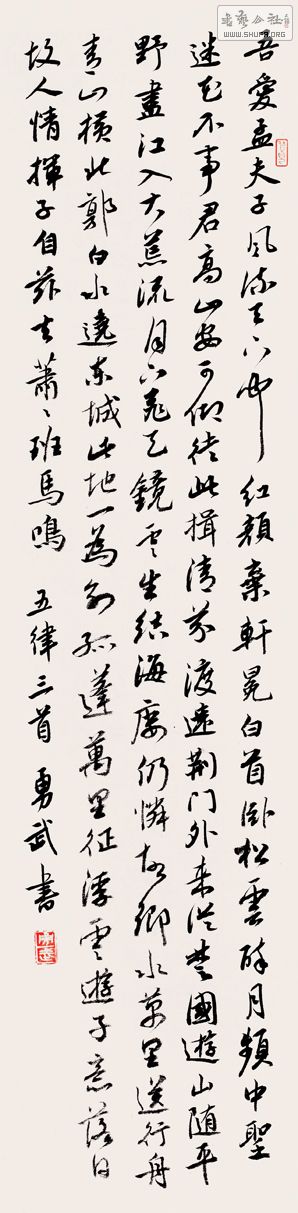 吾愛孟夫子風流天下聞紅顏棄軒冕白首臥松雲醉月頻中聖
迷花不事君高山安可仰徒此揖清芬渡遠荊门外来從楚國遊山随平
野盡江入大荒流月下飛天鏡雲生结海樓仍憐故鄉水萬里送行舟
青山橫北郭白水遶東城此地一為別孤蓬萬里征浮雲遊子意落日
故人情揮手自茲去蕭〻班馬鳴 五律三首 勇武書
書藝公社
WWW.SHUFA.ORG